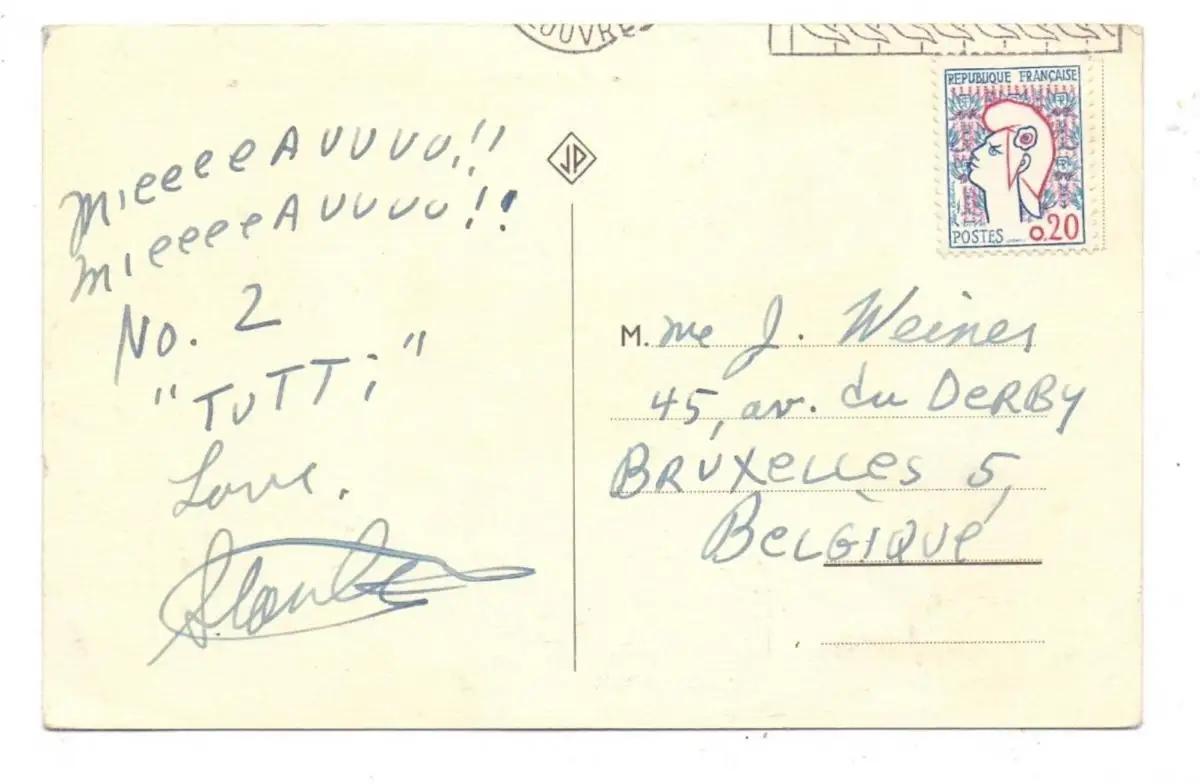 OUVRE
REPUBLIQUE FRANÇAISE
POSTES
0,20
JP
mieeeeAUUUU!!
mieeeeAUUUU!!
No. 2
"TUTTi"
Love.
M. me J. Weiner
45, av. du DeRBy
BRUXelles 5,
BeLGIQUe